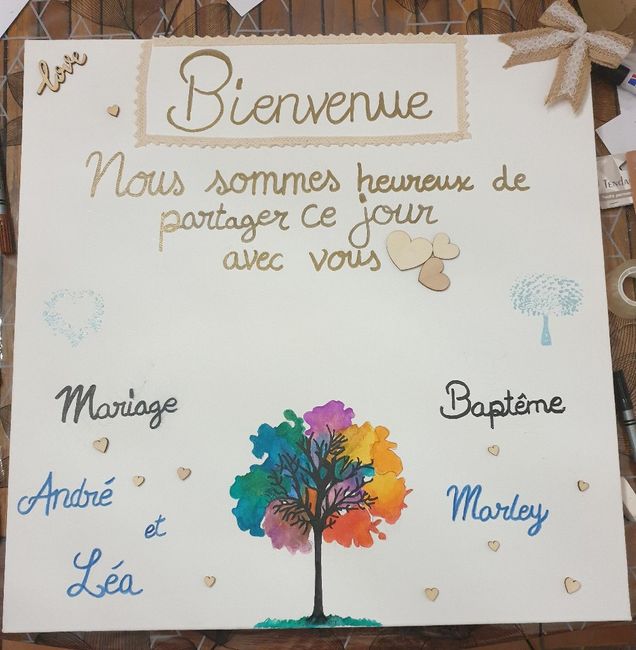 love
Bienvenue
Nous sommes heureux de
partager ce jour
avec vous
Mariage
André
et
Léa
Baptême
Marley
TENDA